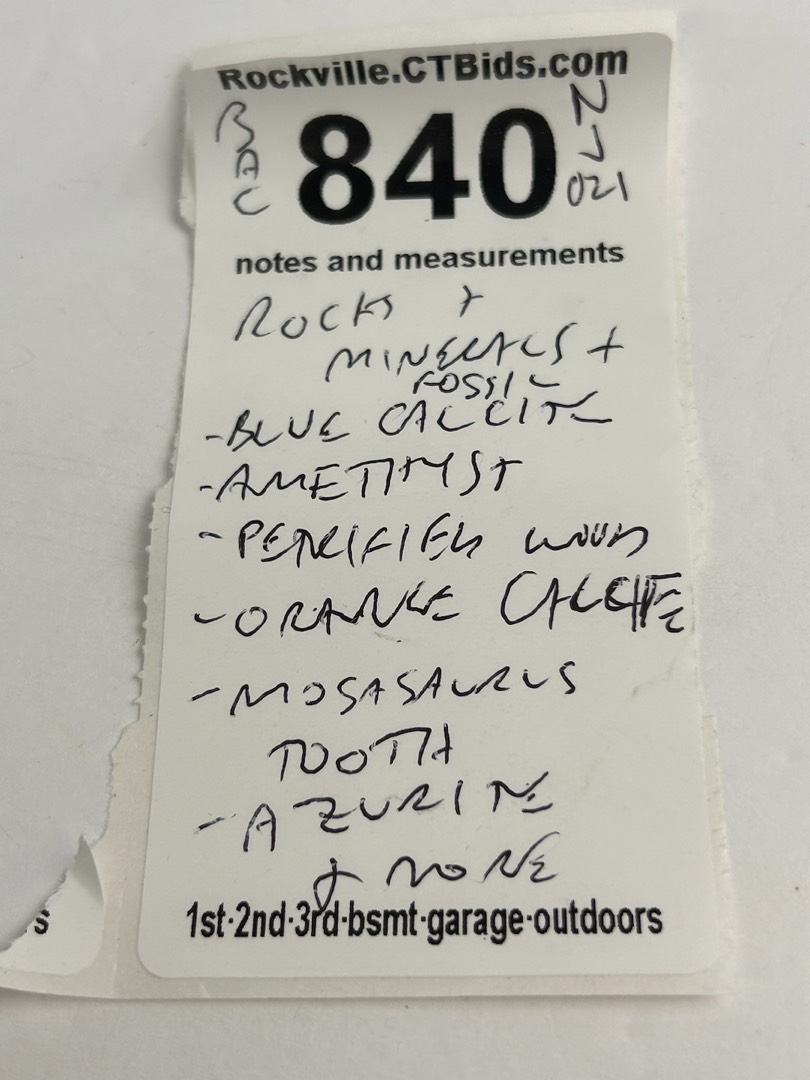 Rockville.CTBids.com
BAC 840
notes and measurements
ROCKS +
MINERALS +
FOSSIL
-BLUE CALCITE
-AMETHYST
-PETRIFIED WOOD
-ORANGE CALCITE
-MOSASAURUS
TOOTH
-AZURITE
+ MORE
1st·2nd·3rd·bsmt·garage·outdoors
s